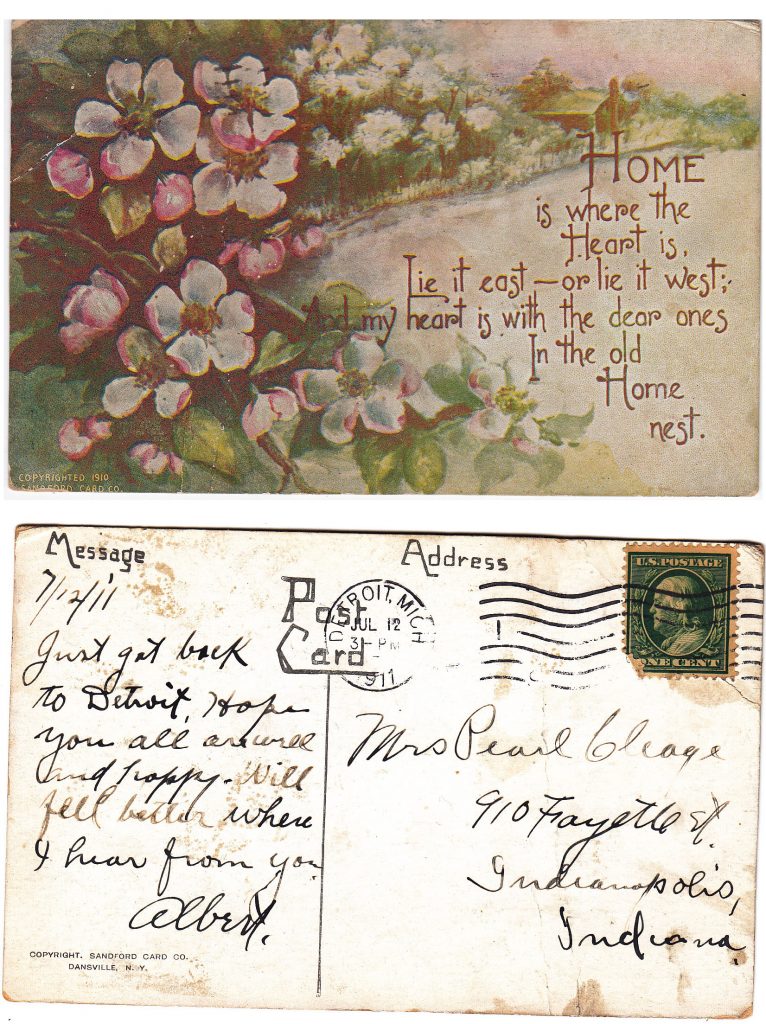 HOME
is where the
Heart is,
Lie it east — or lie it west;
And my heart is with the dear ones
In the old
Home
nest.
COPYRIGHTED 1910
SANDFORD CARD CO.
Message
Address
7/12/11
Post
Card
DETROIT, MICH
JUL 12
3 - PM
1911
U.S. POSTAGE
ONE CENT
Just got back
to Detroit, Hope
you all are well
and happy. Will
fell better when
I hear from you
Albert.
Mrs Pearl Cleage
910 Fayette St.
Indianapolis,
Indiana.
COPYRIGHT, SANDFORD CARD CO.
DANSVILLE, N. Y.